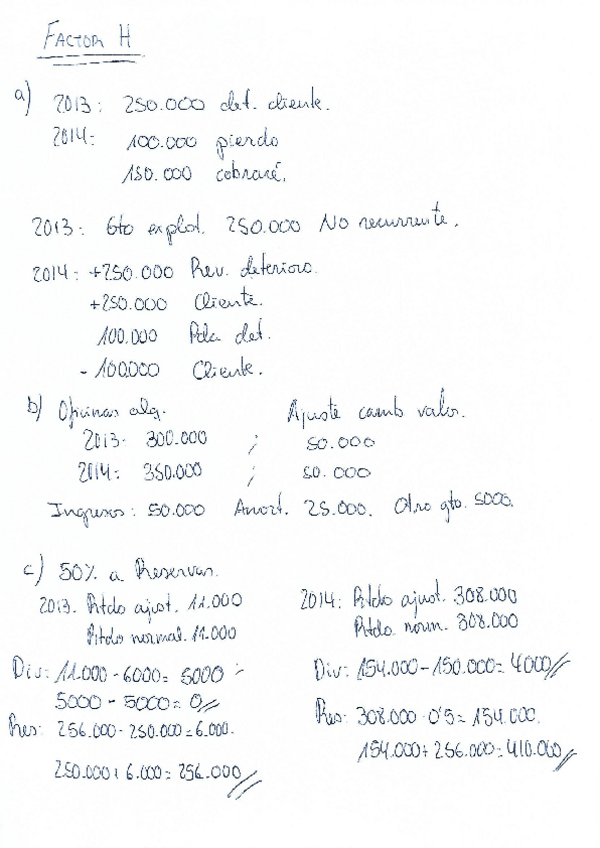 FACTOR H
a) 2013: 250.000 det. cliente.
2014: 100.000 pierdo
150.000 cobraré.
2013: Gto explot. 250.000 No recurrente.
2014: +250.000 Rev. deterioro.
+250.000 Cliente.
100.000 Pda det.
- 100.000 Cliente.
b) Oficinas alq. Ajuste camb valor.
2013: 300.000 ; 50.000
2014: 350.000 ; 50.000
Ingresos: 50.000 Amort. 25.000. Otro gto. 5000.
c) 50% a Reservas.
2013. Rtdo ajust. 11.000
Rtdo normal. 11.000
Div: 11.000 - 6000 = 5000
5000 - 5000 = 0//
Res: 256.000 - 250.000 = 6.000.
250.000 + 6.000 = 256.000//
2014: Rtdo ajust. 308.000
Rtdo. norm. 308.000
Div: 154.000 - 150.000 = 4000//
Res: 308.000 · 0'5 = 154.000.
154.000 + 256.000 = 410.000//